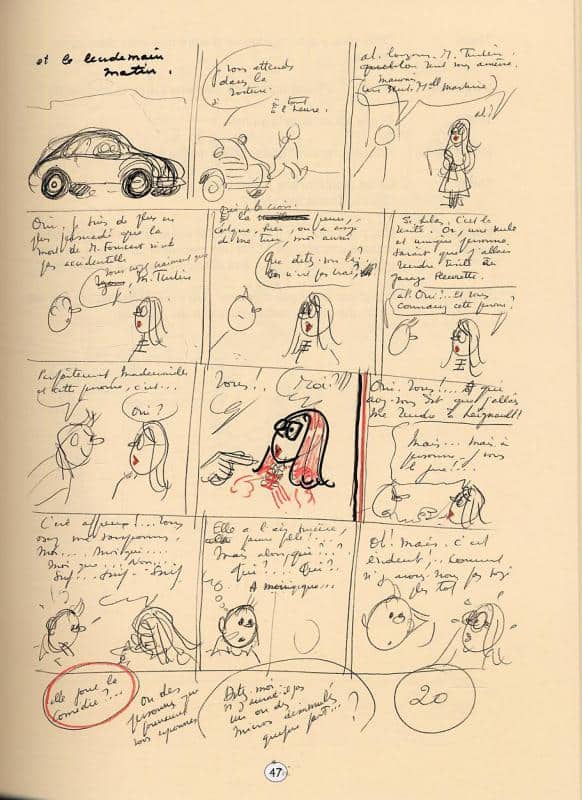 et le lendemain
matin.
je vous attends
dans la
voiture
à tout
à l'heure.
M. Tintin.
Oui, je suis de plus en
plus persuadé que la
mort de M. Fourcart n'est
pas accidentelle
vous croyez vraiment que
M. Tintin
Oui je le crois.
on a essayé
de me tuer, moi aussi
Que dites-vous là?
Ce n'est pas vrai?
Si, hélas, c'est la
vérité. Or, une seule
et unique personne
savait que j'allais
rendre visite au
garage Fleurotte.
ah Oui!.. Et vous
connaissez cette personne?
Parfaitement, Mademoiselle
et cette personne, c'est...
Oui?
Vous!
Moi?!!
Oui. Vous!.... A qui
avez-vous dit que j'allais
me rendre à Leignault!
Mais... mais à
personne. Je vous
le jure!...
C'est affreux!... Vous
osez me soupçonner,
Moi.... Moi qui...
Moi que... Non...
Snif... Snif - Snif
Elle a l'air sincère,
cette jeune fille!..
Mais alors, qui?..?
Qui?.... Qui?..
A moins que...
Oh! Mais.. c'est
évident!.. Comment
n'y avons-nous pas songé
plus tôt
elle joue la
comédie?...
Ou des
personnes qui
pourraient
vous espionner
Dites-moi
n'y aurait-il pas
un ou des
micros dissimulés
quelque part...?
20
47